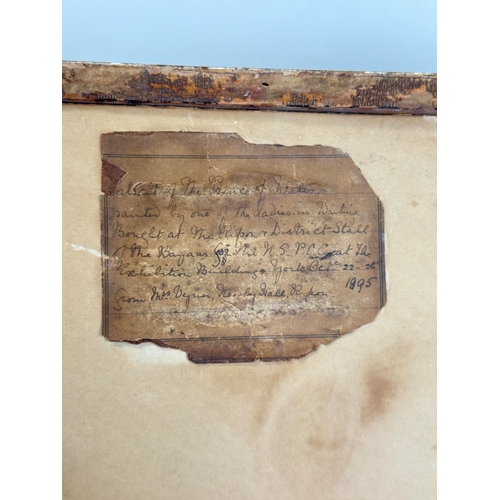 Portrait of The Prince of Wales
painted by one of the Ladies in Waiting
Bought at The Ripon & District Stall
of The Bazaar for The N.S.P.C.C. at The
Exhibition Buildings York Oct 22-26
1895
from Mrs Hall, Ripon